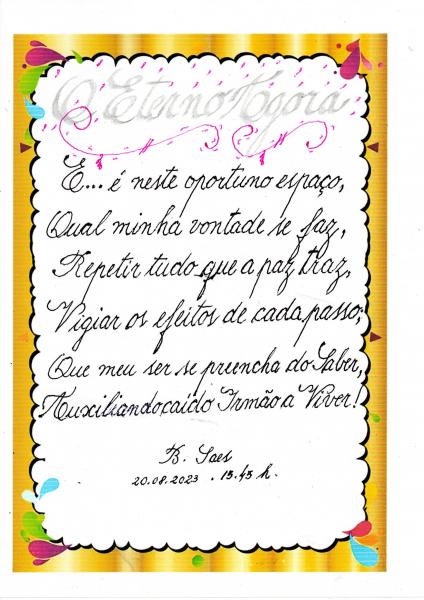 O Eterno Agora
E... é neste oportuno espaço,
Qual minha vontade se faz,
Repetir tudo que a paz traz,
Vigiar os efeitos de cada passo;
Que meu ser se preencha do Saber,
Auxiliando caído Irmão a Viver!
B. Saes
20.08.2023 . 15.45 h.